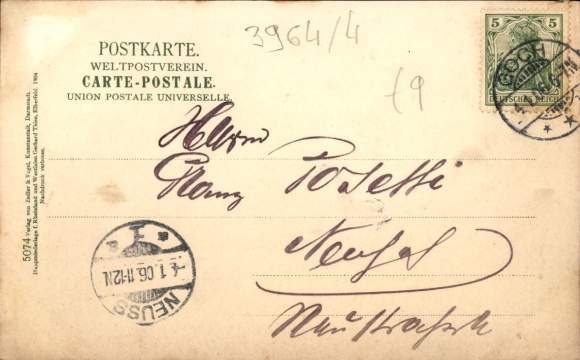 3964/4
5
5
DEUTSCHES REICH
GOCH
POSTKARTE.
WELTPOSTVEREIN.
CARTE-POSTALE.
UNION POSTALE UNIVERSELLE.
Herrn
Franz Posetti
Neuss
Neustrasse
NEUSS
4.1.06.11-12N.
5074 Verlag von Zedler & Vogel, Kunstanstalt, Darmstadt.
Hauptniederlage f. Rheinland und Westfalen Gerhard Thien, Elberfeld. 1904
Nachdruck verboten.